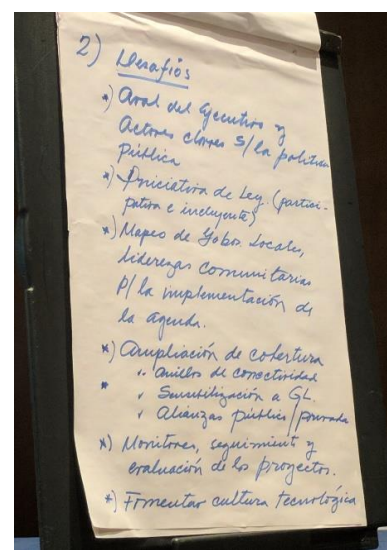 2) Desafíos
*) Aval del Ejecutivo y
Actores claves s/la política
Pública
*) Iniciativa de Ley (partici-
pativa e incluyente)
*) Mapeo de Gobos Locales,
liderezas comunitarias
P/ la implementación de
la agenda.
*) Ampliación de cobertura
.. Anillos de conectividad
* , Sensibilización a GL.
, Alianzas público/privada
*) Monitoreo, seguimiento y
evaluación de los proyectos.
*) Fomentar cultura tecnológica